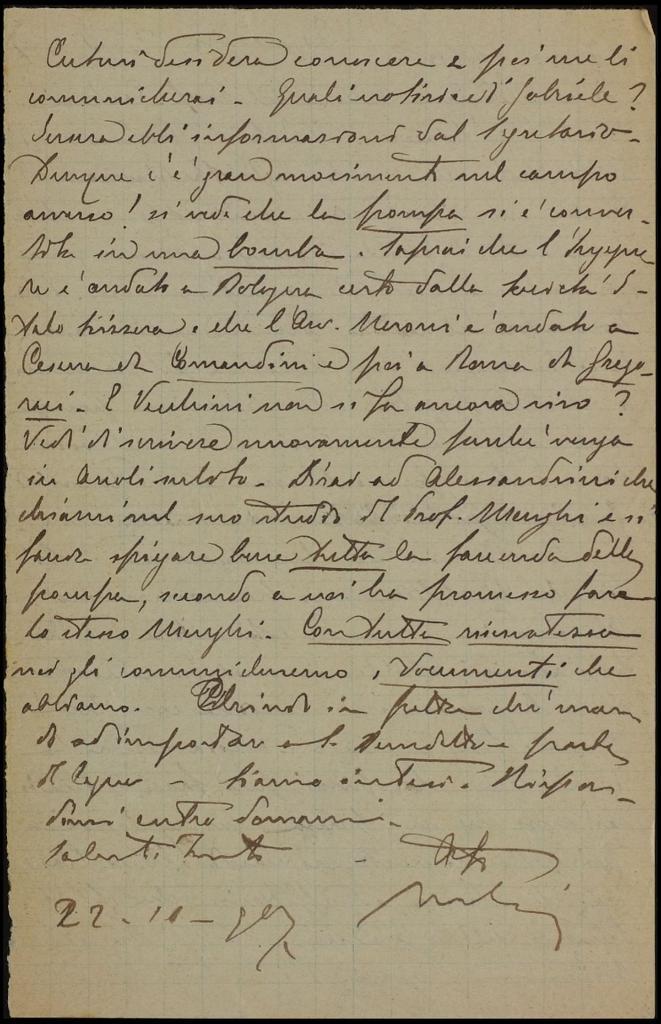 desidera conoscere e poi me li
comunicherai - Quali notizie di Gabriele?
ebbi informazioni dal Segretario -
Dunque c'è gran movimenti nel campo
avverso! si vede che la pompa si è conver-
tita in una bomba. Saprai che l'Ingegne
re è andato a Bologna certo dalla Società d-
che l'Avv. Meroni è andato a
Cesena da Comandini e poi a Roma da Grego-
raci. E Vecchini non si fa ancora vivo?
Vedi di scrivere nuovamente perché venga
in subito. Dirai ad Alessandrini che
chiami nel suo studio il Prof. Menghi e si
faccia spiegare bene tutta la faccenda della
pompa, secondo a noi ha promesso fare
lo stesso Menghi. Con tutta riservatezza
noi gli comunicheremo i documenti che
abbiamo. in fretta ché man
do ad impostar
di - Siamo intesi. Rispon-
dimi entro domani.
Saluti Tanti
22-11-907